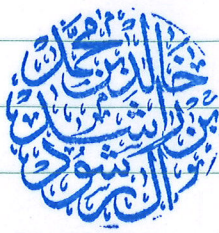 خالد بن محمد
بن راشد
الرشود